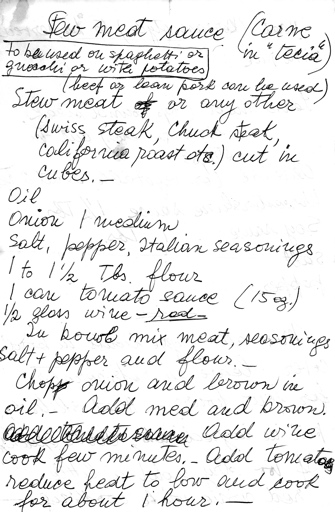 Stew meat sauce (Carne
in "tecia")
to be used on spaghetti or
gnocchi or with potatoes
(beef or lean pork can be used)
Stew meat or any other
(swiss steak, chuck steak,
california roast etc.) cut in
cubes.—
Oil
Onion 1 medium
Salt, pepper, Italian seasonings
1 to 1 1/2 Tbs. flour
1 can tomato sauce (15 oz.)
1/2 glass wine - red -
In bowl mix meat, seasonings
Salt + pepper and flour.—
Chop onion and brown in
oil.- Add med and brown
Add wine
cook few minutes.- Add tomatoe
reduce heat to low and cook
for about 1 hour.—